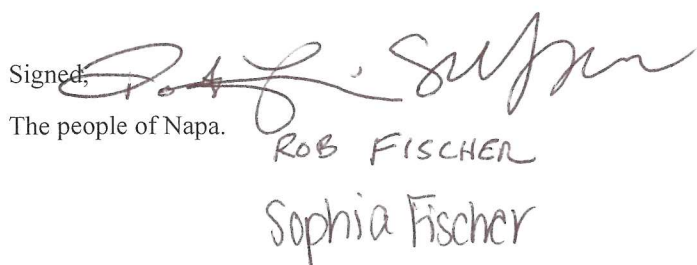 Signed,
The people of Napa.
ROB FISCHER
Sophia Fischer